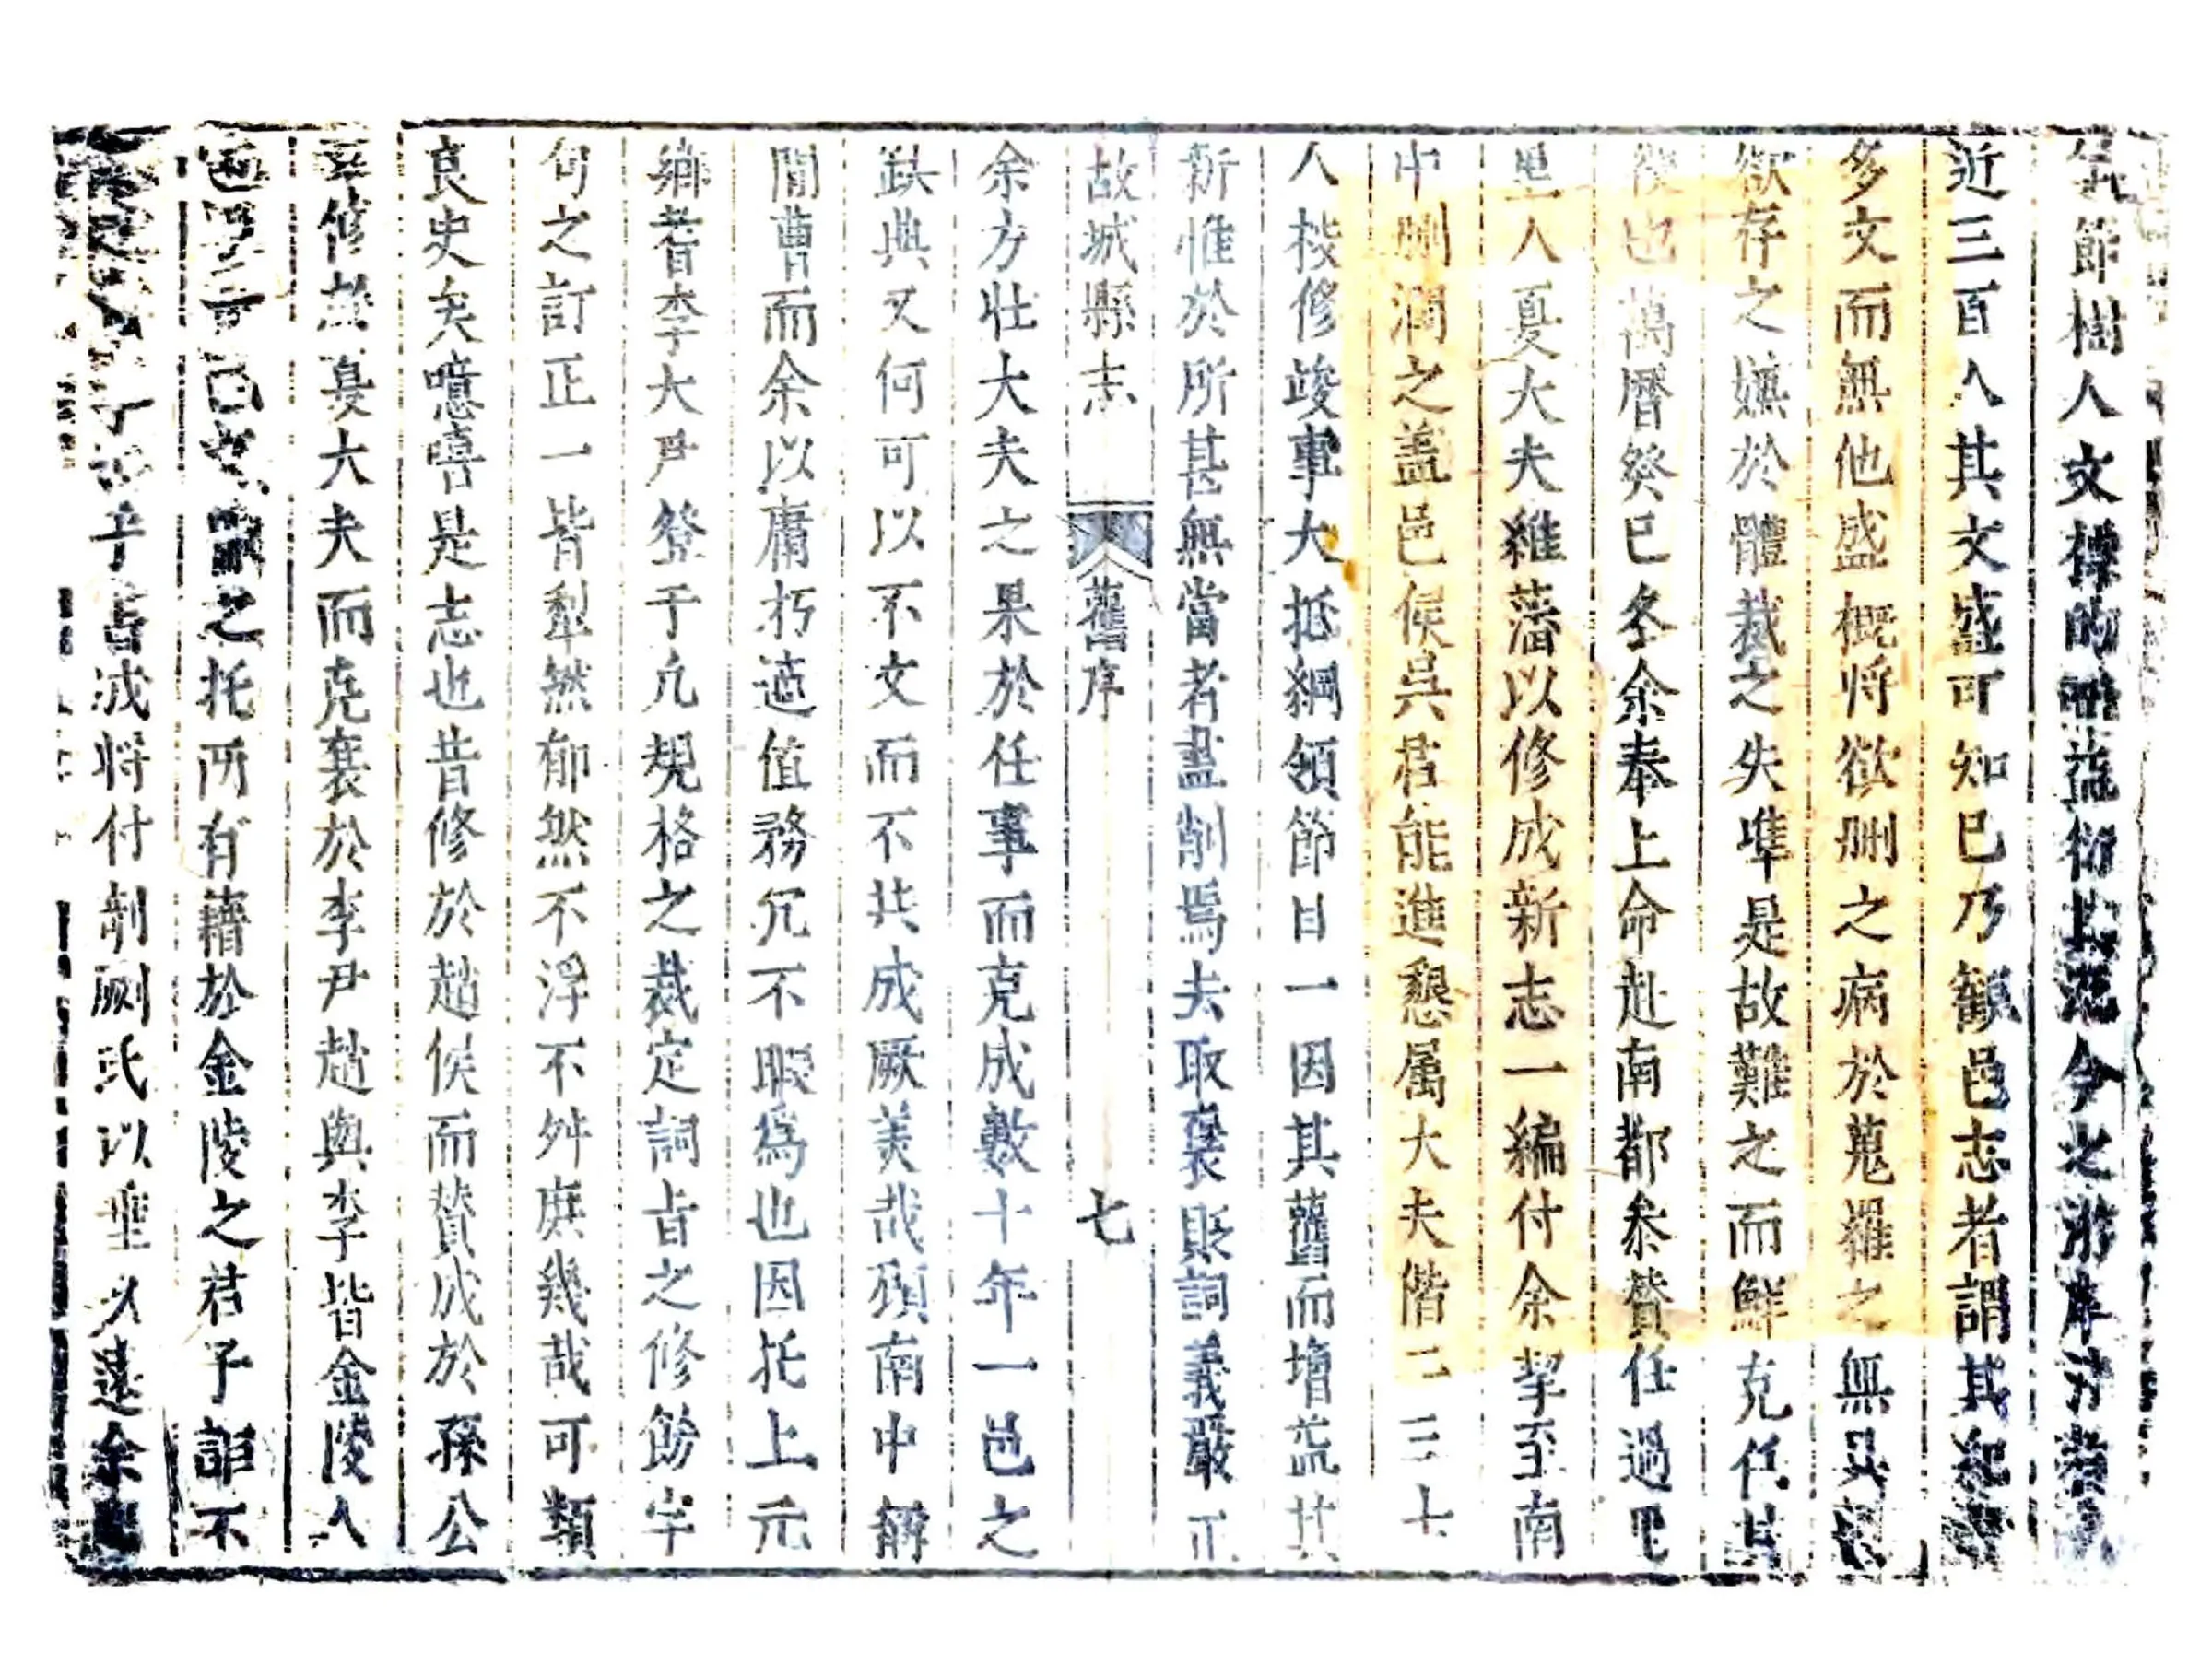 節樹人文標的
近三百人其文盛可知已乃観邑志者謂其
多文而無他盛概将欲刪之病於蒐羅之無
欲存之嫌於體裁之失準是故難之而鮮克任其
也萬曆癸巳冬余奉上命赴南都叅賛任過里
里人夏大夫維藩以修成新志一編付余挈至南
中刪潤之盖邑侯呉君能進懇属大夫偕二三士
人校修竣事大抵綱領節目一因其舊而増益其
新惟於所甚無當者盡削焉夫取褒貶詞義嚴正
故城縣志
舊序
七
余方壯大夫之果於任事而克成數十年一邑之
鈌典又何可以不文而不共成厥美哉頋南中觧
閒曹而余以庸朽適值務冗不暇為也因托上元
鄉耆李大尹登于凡規格之裁定詞旨之修飭字
句之訂正一皆犁然郁然不浮不舛庶幾哉可類
良史矣噫嘻是志也昔修於趙侯而賛成於孫公
修於夏大夫而克襄於李尹趙與李皆金陵人
之托両有籍於金陵之君子詎不
乎書成将付剞劂氏以垂久遠余